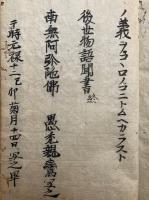 ノ義ヲヨロノコニトムヘカラスト
後世物語聞書 終
南無阿弥陀佛 愚禿親鸞
于時元禄十二己卯菊月十四日写之畢